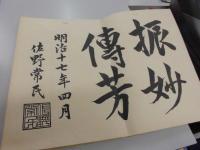 振妙
傳芳
明治十七年四月
佐野常民